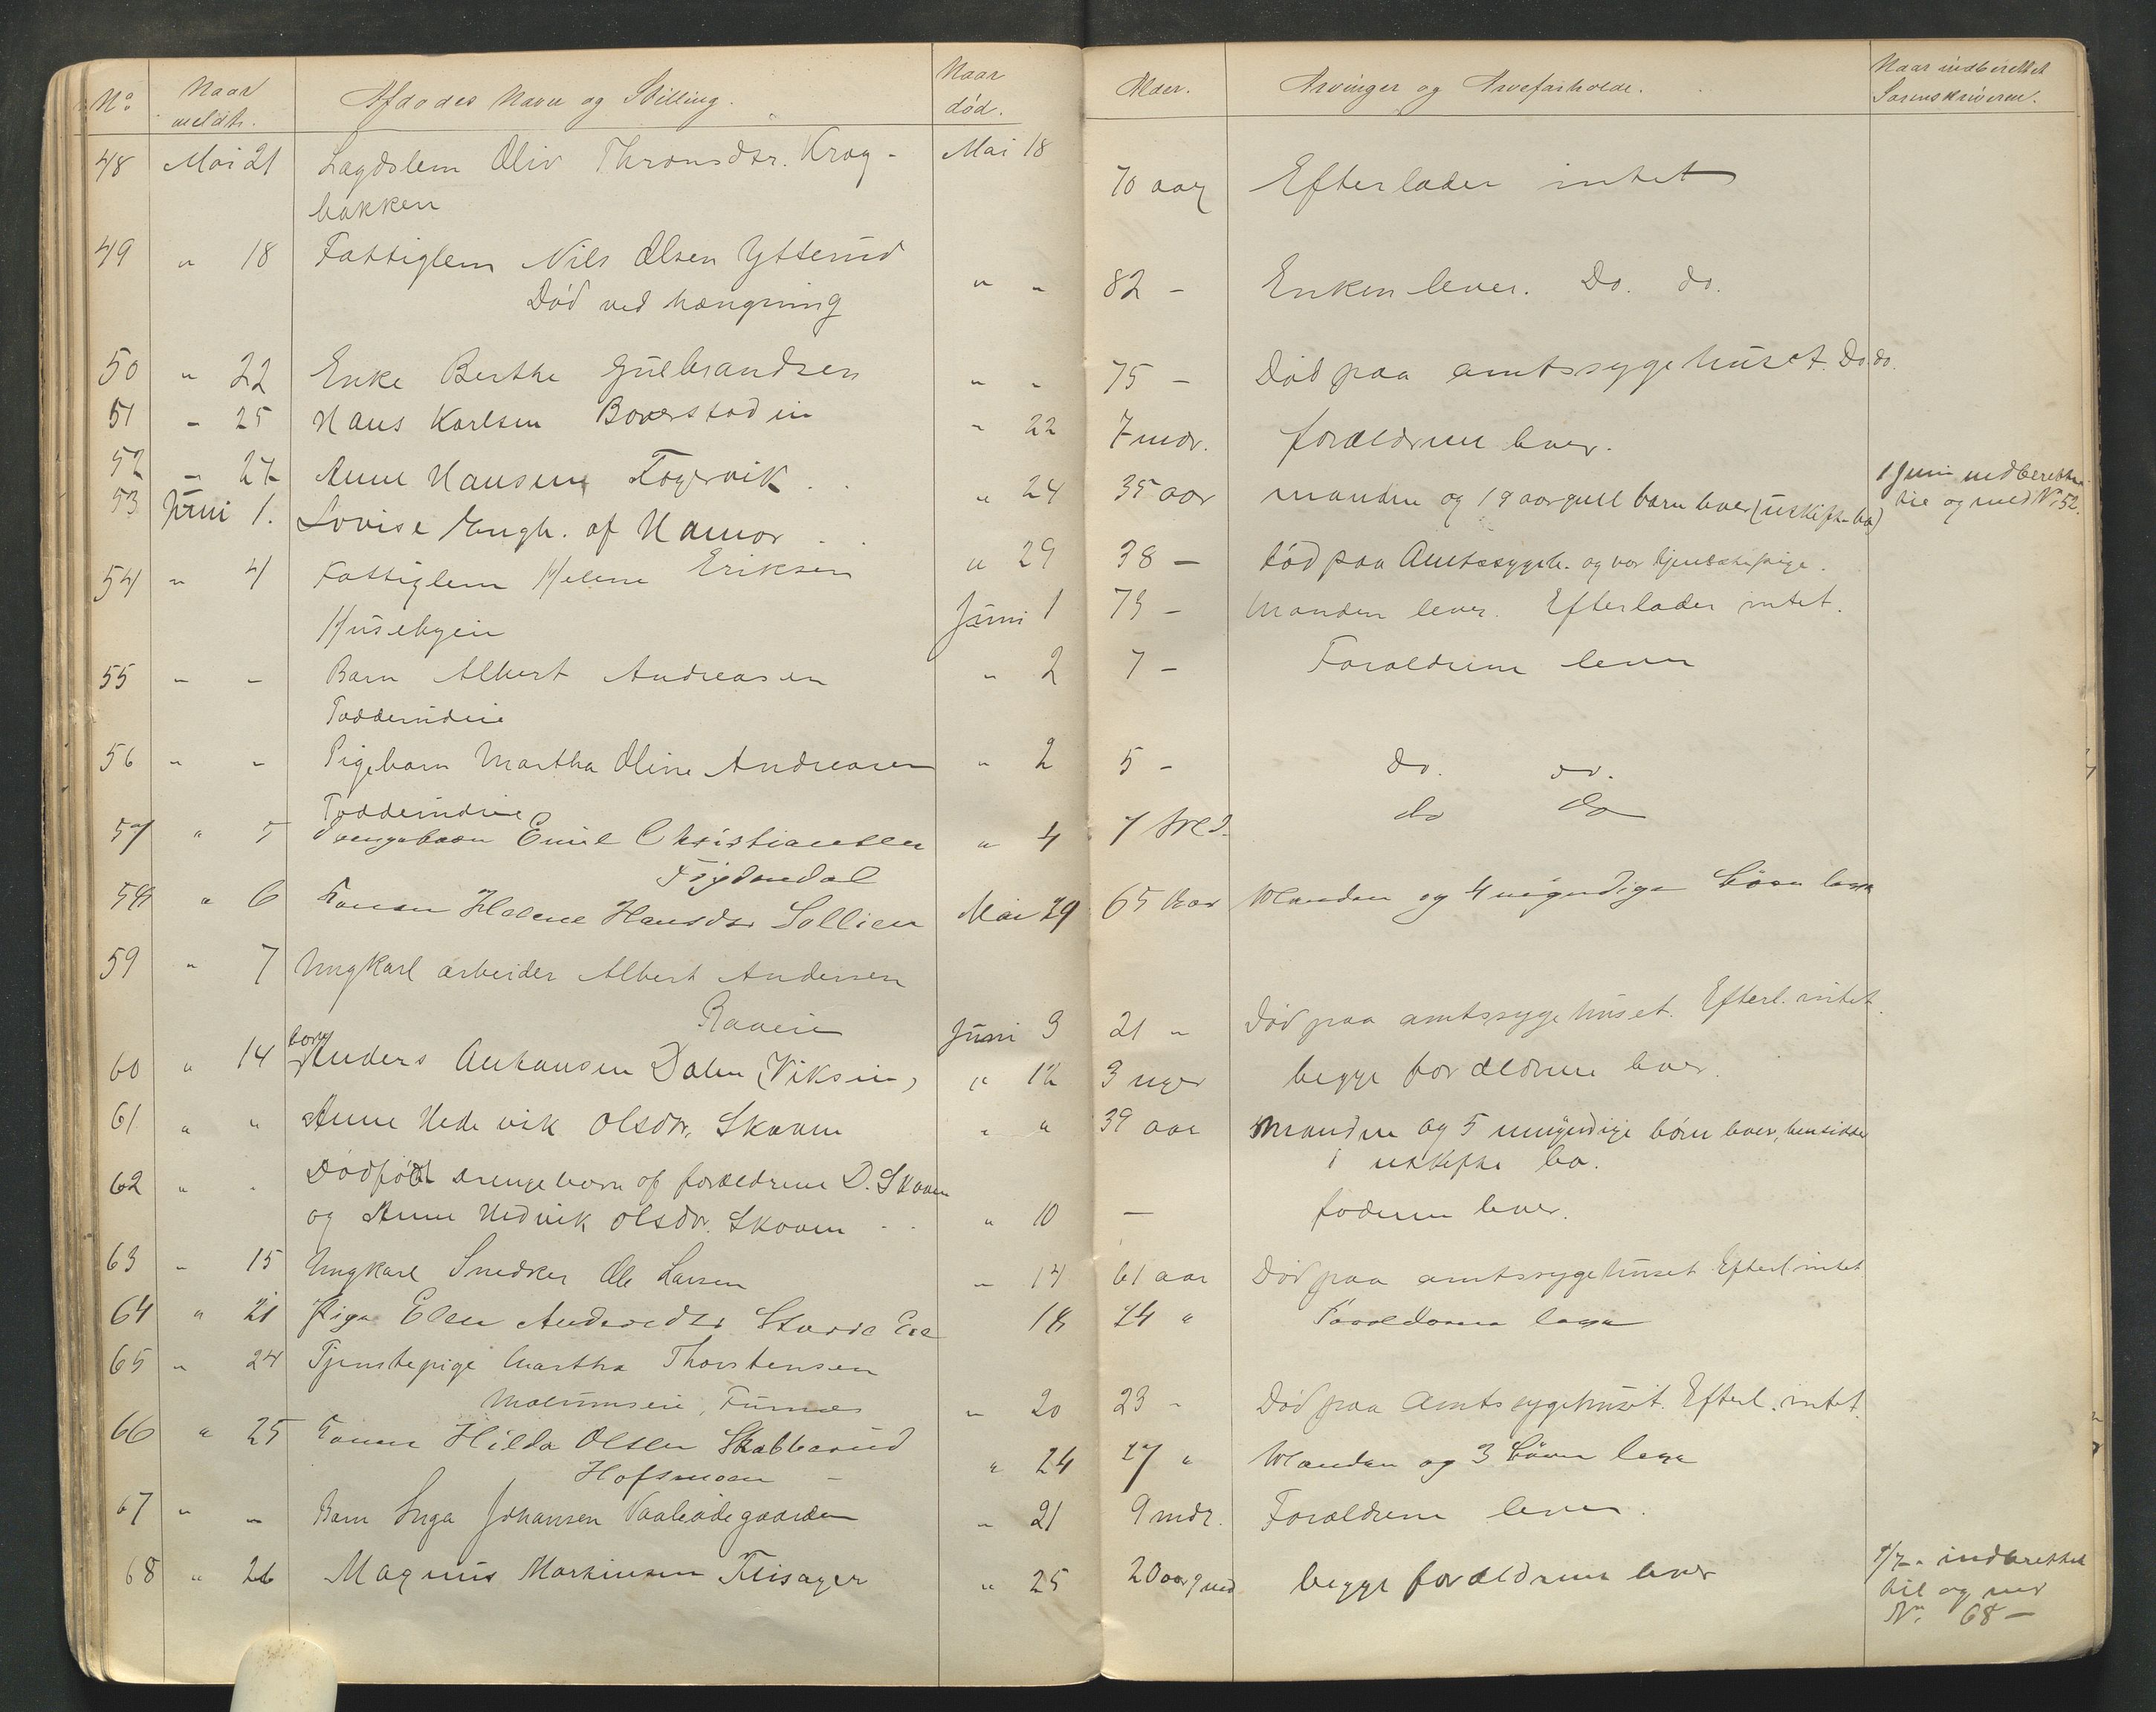 No Naar meldt. Afdødes Navn og Stilling. Naar død. Alder. Arvinger og Arveforholde. Naar indberettet Sorenskriveren.
48 Mai 21 Lægdslem Oliv Thronsdtr. Krag- Mai 18 70 aar Efterlader intet
bakken
49 " 18 Fattiglem Nils Olsen Ytterud " " 82 - Enken lever. Do. do.
Død ved hængning
50 " 22 Enke Berthe Gulbrandsen " " 75 - Død paa amtssygehuset. Do. do.
51 " 25 Hans Karlsen Boverstadin " 22 7 mdr. forældrene lever.
52 " 27 Anne Hansen Fagervik . . " 24 35 aar manden og 1 9 aar gull barn lever (uskifte bo) 1 Juni indberettet
til og med No 52.
53 Juni 1. Lovise Engh. af Hamar . . " 29 38 - død paa Amtssygeh. og var tjenestepige.
54 " 4 Fattiglem Helene Eriksen Juni 1 79 - Manden lever. Efterlader intet.
Husebyein
55 " " Barn Albert Andreasen " 2 7 - Forældrene lever
Todderudeie
56 " " Pigebarn Martha Oline Andreasen " 2 5 - do. do.
Todderudeie
57 " 5 Drengebarn Emil Christiansen " 4 7 Md. do do
58 " 6 Konen Helene Hansdtr Sollien Mai 29 65 Aar Manden og 4 myndige Børn leve
59 " 7 Ungkarl arbeider Albert Andersen
Raaeie Juni 3 21 " Død paa amtssygehuset. Efterl. intet.
60 " 14 barn Anders Antonsen Dalen (Viksein) " 12 3 uger begge forældrene lever.
61 " " Anne Hedevik Olsdtr. Skaven " " 39 aar Manden og 5 umyndige børn lever, hensidder
i uskiftet bo.
62 " " Dødfødt drengebarn af forældrene D. Skaven
og Anne Hedvik Olsdtr. Skaven . . " 10 — faderen lever.
63 " 15 Ungkarl Snedker Ole Larsen " 14 61 aar Død paa amtssygehuset Efterl. intet
64 " 21 Pige Elen Andersdtr Stavse Eie 18 24 " Forældrene leve
65 " 24 Tjenstepige Martha Thorstensen
Molumseie, Furnes " 20 23 - Død paa Amtssygehuset. Efterl. intet.
66 " 25 Konen Hilda Olsen Skabberud
Hofsmoen - " 24 27 " Manden og 3 Børn leve
67 " " Barn Inga Johansen Vaalødegaarden " 21 9 mdr. Forældrene lever.
68 " 26 Magnus Martinsen Flisager " 25 20 aar 9 md begge forældrene lever 1/7. indberettet
til og med
No. 68 -